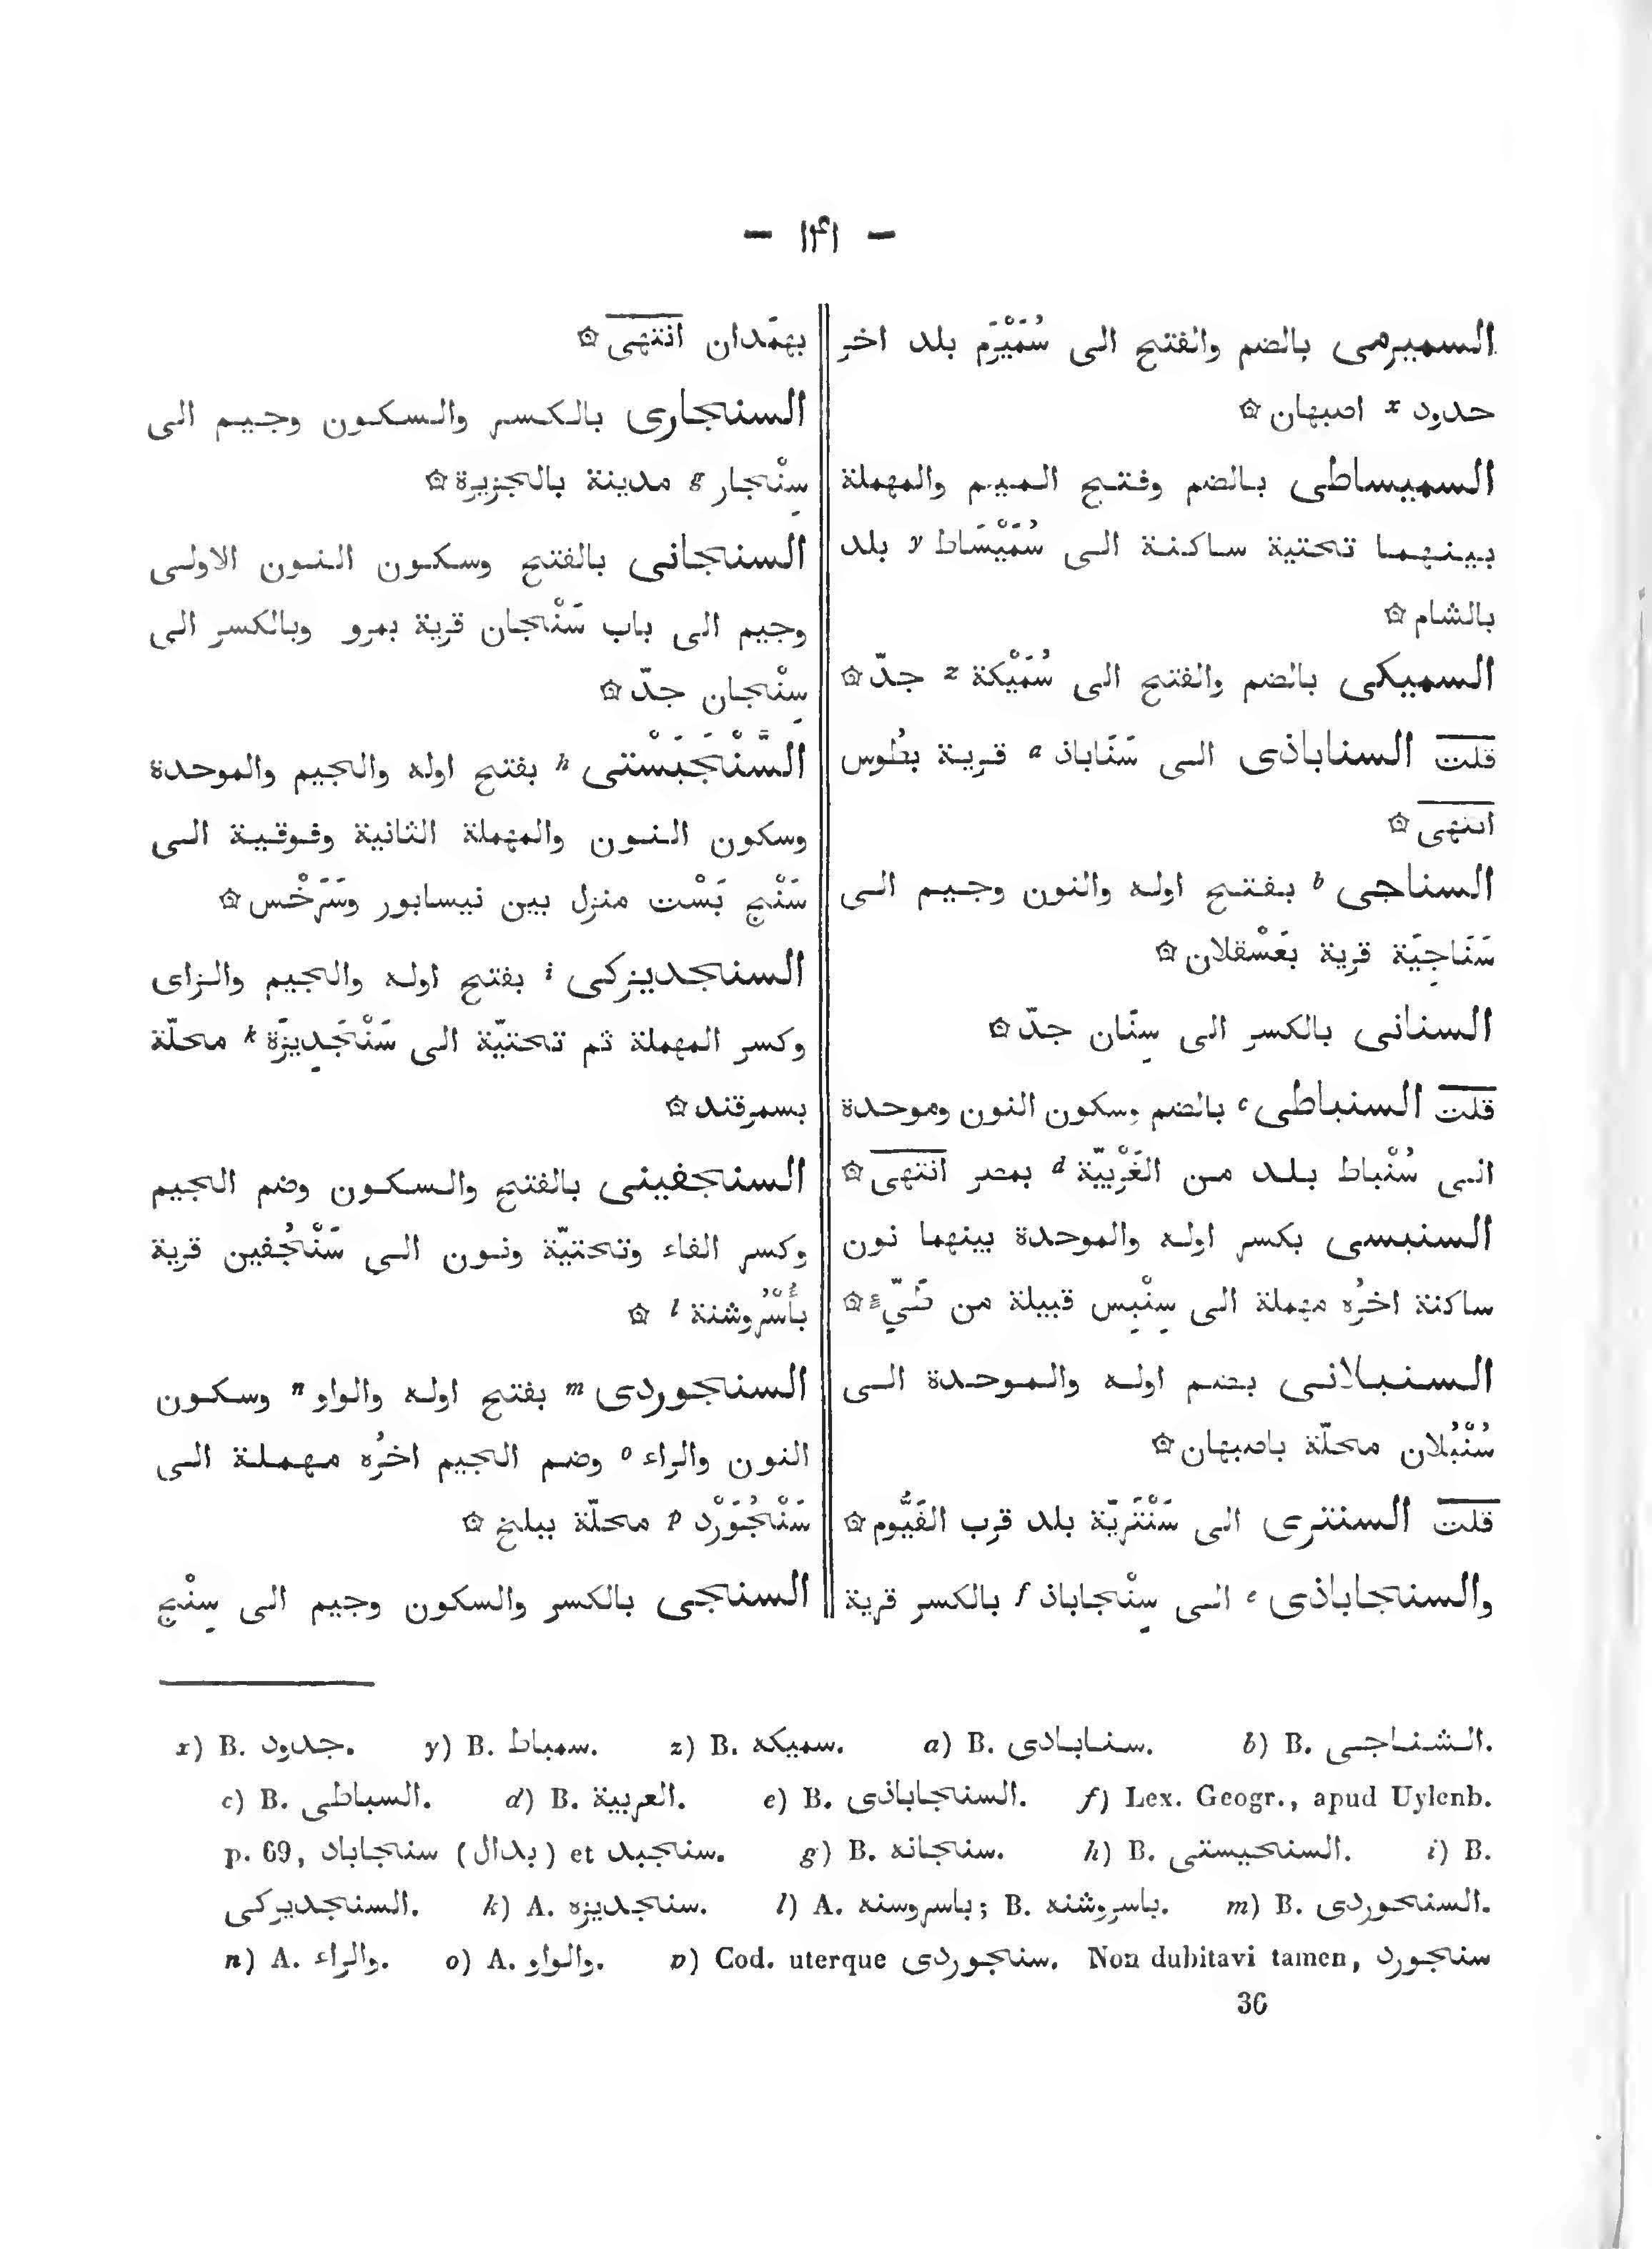 — ١٤١ —
السميرمى بالضم والفتح الى سُمَيْرَم بلد اخر
حدود x اصبهان ۞
السميساطى بالضم وفتح الميم والمهملة
بينهما تحتية ساكنة الى سُمَيْسَاط y بلد
بالشام ۞
السميكى بالضم والفتح الى سُمَيْكة z جدّ ۞
قلت السناباذى الى سَنَاباذ a قرية بطُوس
انتهى ۞
السناجى b بفتح اوله والنون وجيم الى
سَنَاجِيَة قرية بعَسْقلان ۞
السنانى بالكسر الى سِنَان جدّ ۞
قلت السنباطى c بالضم وسكون النون وموحدة
الى سُنْباط بلد من الغَرْبيّة d بمصر انتهى ۞
السنبسى بكسر اوله والموحدة بينهما نون
ساكنة اخرُه مهملة الى سِنْبِس قبيلة من طَيّء ۞
السنبلانى بضم اوله والموحدة الى
سُنْبُلان محلّة باصبهان ۞
قلت السنترى الى سَنْتَريّة بلد قرب الفَيُّوم ۞
والسنجاباذى e الى سِنْجاباذ f بالكسر قرية
بهمَدان انتهى ۞
السنجارى بالكسر والسكون وجيم الى
سِنْجار g مدينة بالجزيرة ۞
السنجانى بالفتح وسكون النون الاولى
وجيم الى باب سَنْجان قرية بمرو وبالكسر الى
سِنْجان جدّ ۞
السَّنْجَبَسْتى h بفتح اوله والجيم والموحدة
وسكون النون والمهملة الثانية وفوقية الى
سَنْج بَسْت منزل بين نيسابور وسَرَخْس ۞
السنجديزكى i بفتح اوله والجيم والزاى
وكسر المهملة ثم تحتيّة الى سَنْجَدِيزَة k محلّة
بسمرقند ۞
السنجفينى بالفتح والسكون وضم الجيم
وكسر الفاء وتحتيّة ونون الى سَنْجُفين قرية
بأُسْرُوشنة l ۞
السنجوردى m بفتح اوله والواو n وسكون
النون والراء o وضم الجيم اخرُه مهملة الى
سَنْجُوَرْد p محلّة ببلخ ۞
السنجى بالكسر والسكون وجيم الى سِنْج
x) B. جدود. y) B. سمباط. z) B. سميكه. a) B. سنابادى. b) B. الشناجى.
c) B. السباطى. d) B. العربية. e) B. السنجاباذى. f) Lex. Geogr., apud Uylenb.
p. 69, سنجاباد (بدال) et سنجبد. g) B. سنجانه. h) B. السنحيستى. i) B.
السنجديركى. k) A. سنجديزه. l) A. باسروسنه; B. باسروشنه. m) B. السنحوردى.
n) A. والراء. o) A. والواو. p) Cod. uterque سنجوردى. Non dubitavi tamen, سنجورد
36